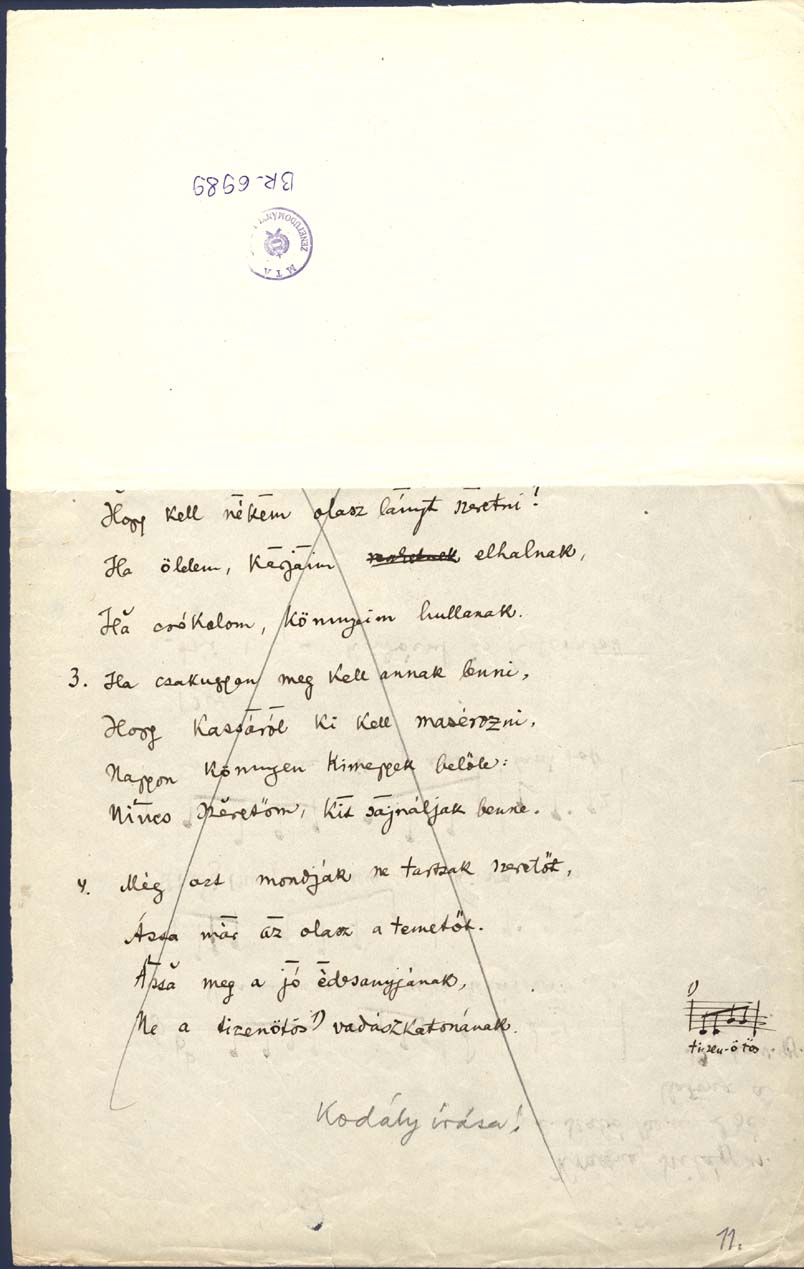 BR-6989
MTA ZENETUDOMÁNYI
Hogy kell nékem olasz lányt szeretni!
Ha ölelem, karjaim elhalnak,
Ha csókolom, könnyeim hullanak.
3. Ha csakugyan meg kell annak lenni,
Hogy Kassáról ki kell masérozni,
Nagyon könnyen kimegyek belőle:
Nincs szeretőm, kit sajnáljak benne.
4. Még azt mondják ne tartsak szeretőt,
Ássa már az olasz a temetőt.
Ássa meg a jó édesanyjának,
Ne a tizenötös 1) vadászkatonának.
1)
tizen-ö-tös
Kodály írása!
11.